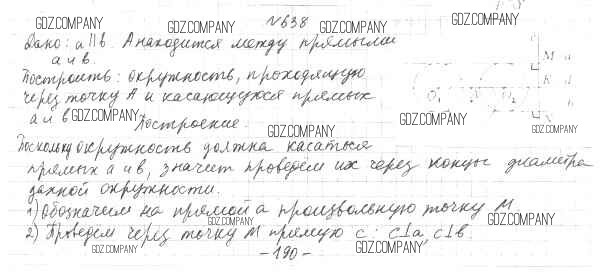 N638
GDZ.COMPANY GDZ.COMPANY GDZ.COMPANY
Дано: a||b. A находится между прямыми
a и b.
GDZ.COMPANY GDZ.COMPANY
Построить: окружность, проходящую
через точку A и касающуюся прямых
a и b
GDZ.COMPANY GDZ.COMPANY
Построение.
GDZ.COMPANY
Поскольку окружность должна касаться
прямых a и b, значит проведём их через концы диаметра
данной окружности.
GDZ.COMPANY GDZ.COMPANY
1) Обозначим на прямой a произвольную точку M
GDZ.COMPANY
2) Проведём через точку M прямую c: c⊥a, c⊥b.
GDZ.COMPANY GDZ.COMPANY
-190-
c
M a
K d
O₁ O₂ b